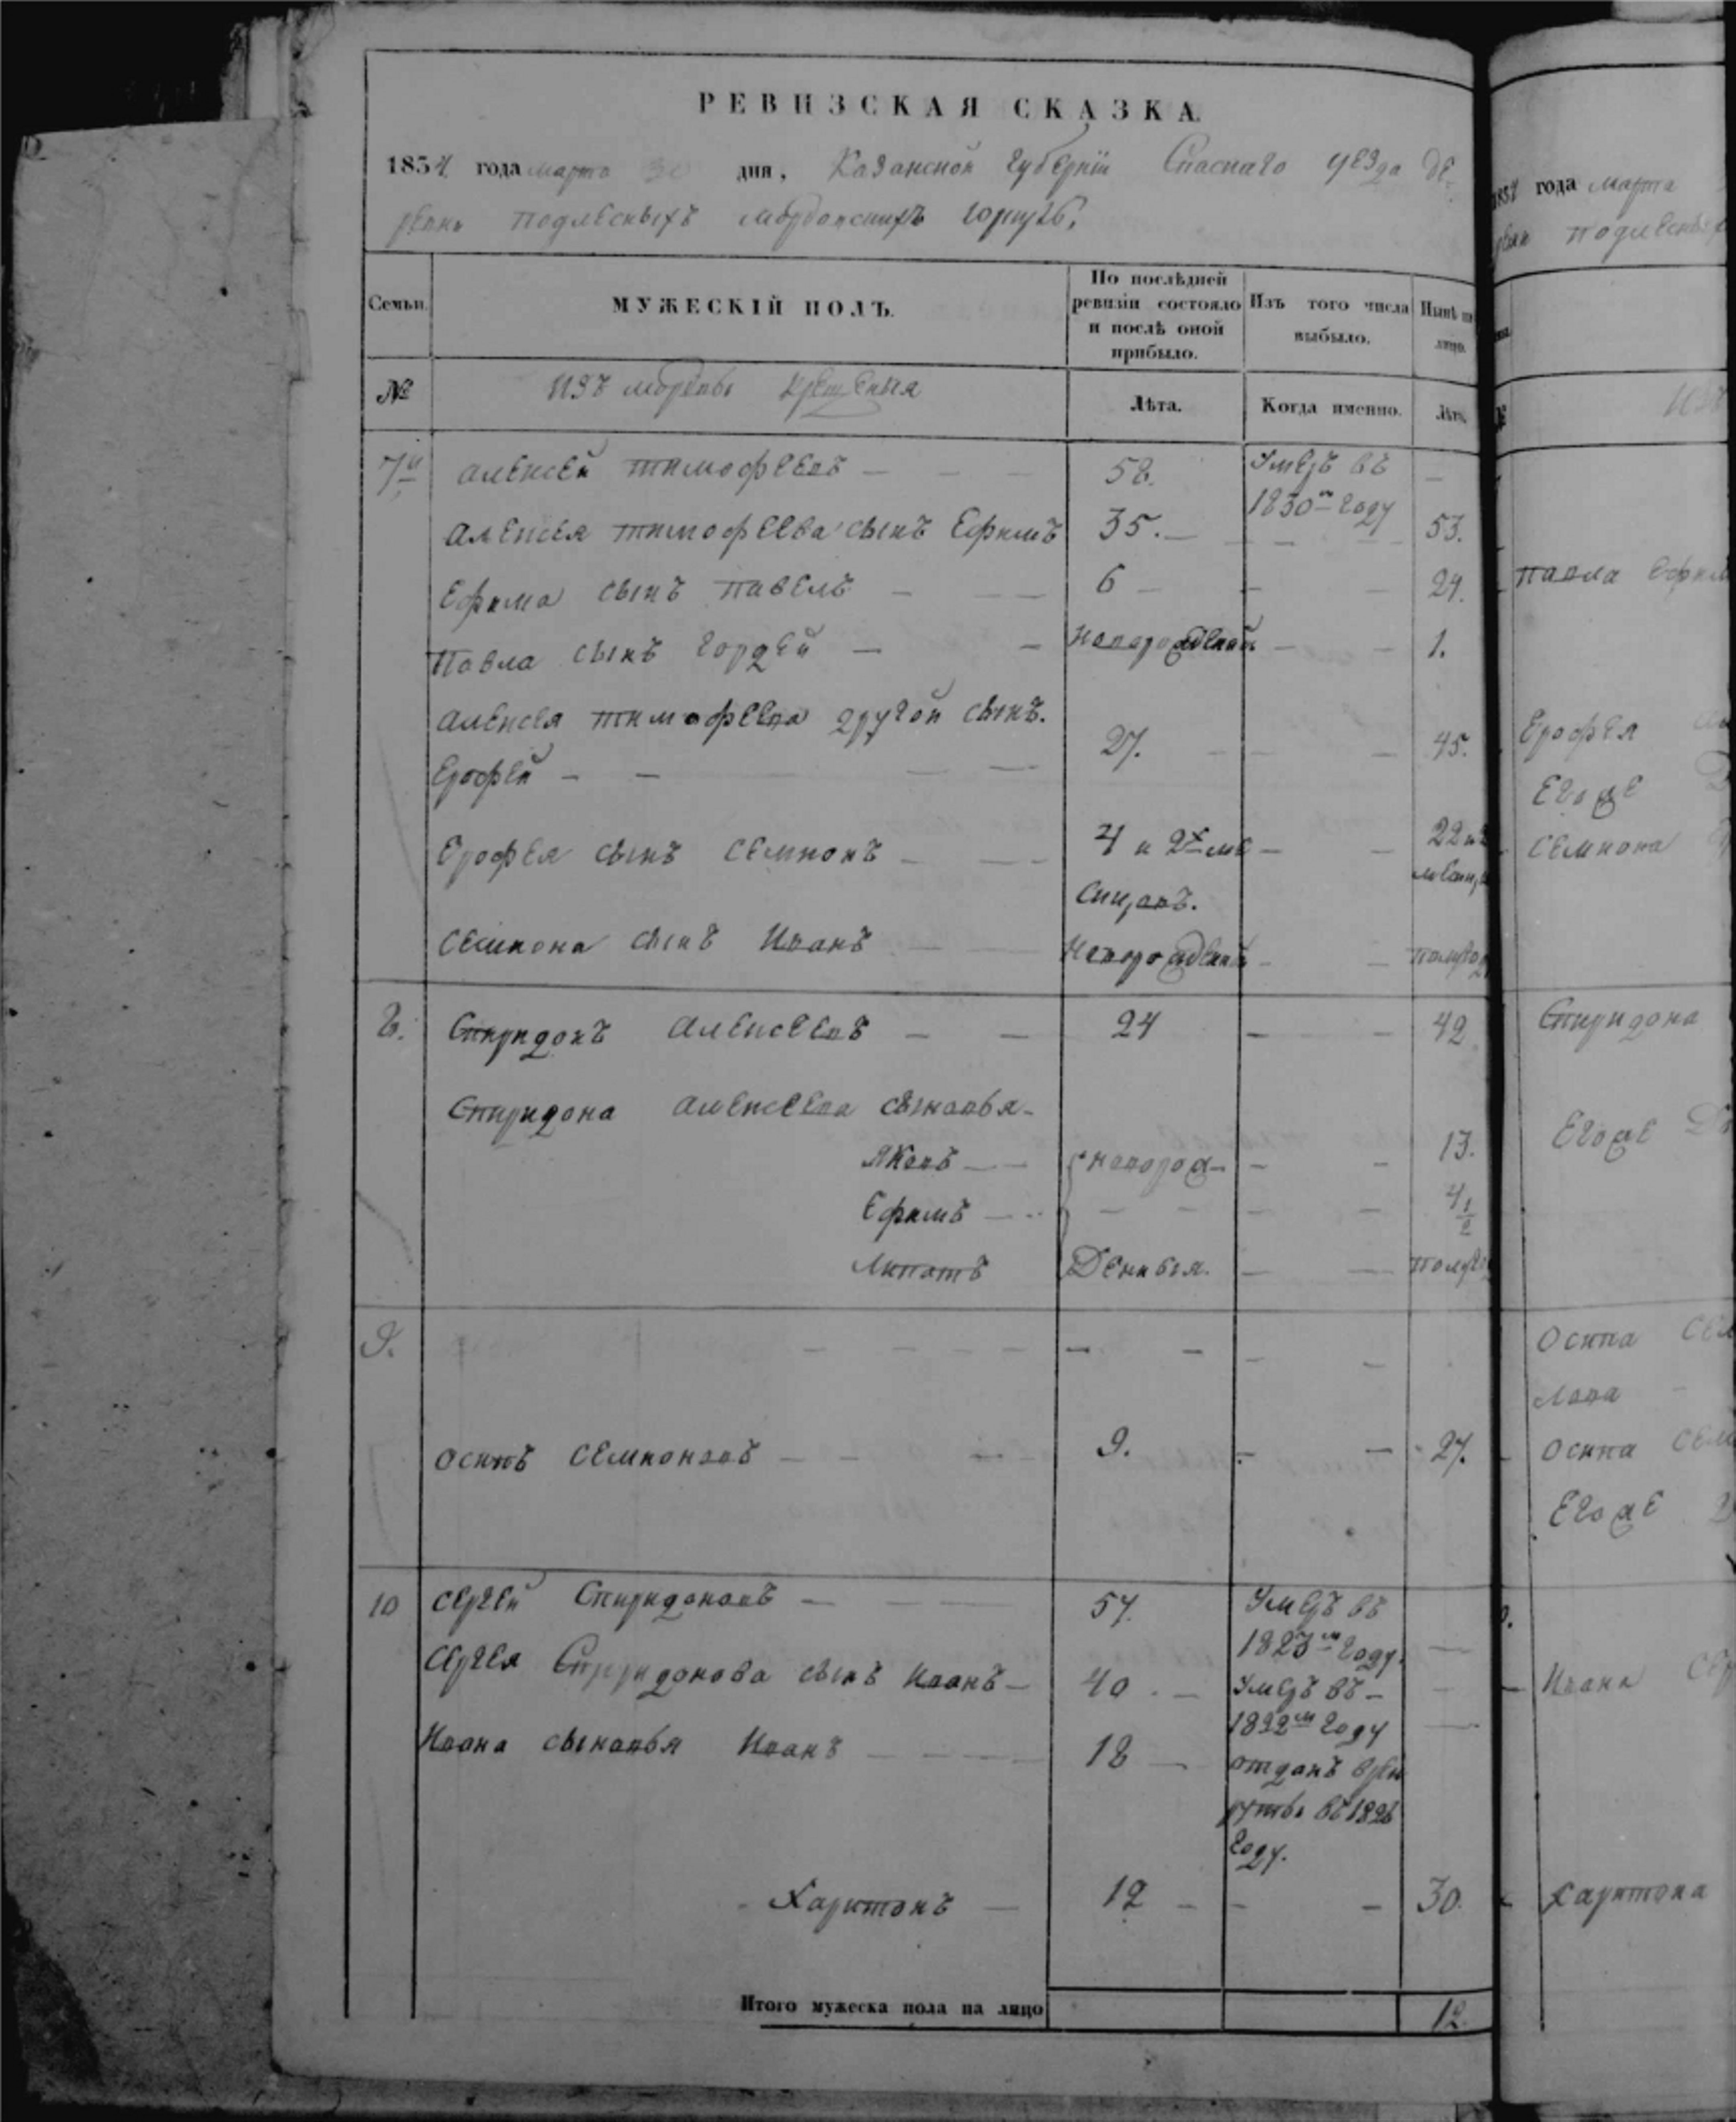 РЕВИЗСКАЯ СКАЗКА
1834 года марта 30 дня, Казанской губернiи Спаскаго уезда де-
ревни подлесныхъ мордовскихъ
Семьи. МУЖЕСКIЙ ПОЛЪ. По послѣдней ревизiи состояло и послѣ оной прибыло. Изъ того числа выбыло. Нынѣ на лицо.
№ изъ мордвы крещеныя Лѣта. Когда именно. Лѣта.
7й алексей тимофеевъ — 58. Умеръ въ —
1830м году
алексея тимофеева сынъ Ефимъ 35. — 53.
Ефима сынъ павелъ — 6 — 24.
Павла сынъ гордей — новорожденый — 1.
алексея тимофеева другой сынъ.
Ерофей — 27. — 45.
Ерофея сынъ семионъ — 4 и 2х ме — 22 и 2
сицовъ. месяц
семиона сынъ Иванъ — Новорожденый — полугод
8. Спиридонъ алексеевъ — 24 — 42
Спиридона алексеева сыновья-
Яковъ — новорож- — 13.
Ефимъ — 4 1/2
Липатъ Денныя. — полуго
9. — — —
осипъ семионовъ — 9. — 27.
10 сергей Спиридоновъ — 57. Умеръ въ
1823м году. —
сергея Спиридонова сынъ Иванъ — 40. — Умеръ въ —
1822м году —
Ивана сыновья Иванъ — 18 — отданъ врек
рутъ въ 1826
году.
Харитонъ — 12 — 30.
Итого мужеска пола на лицо 12.
года марта
подлесны
павла Ефим
Ерофея
Егоже
семиона
Спиридона
Егоже
осипа сем
осипа сем
Егоже
Ивана сер
харитона